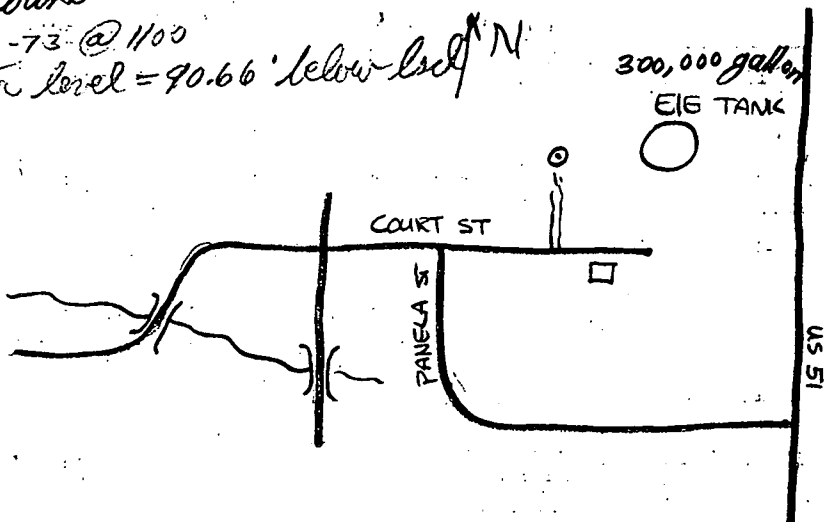 -73 @ 1100
level = 90.66' below lsd
N
300,000 gallon
ElE TANK
COURT ST
PANELA ST
US 51